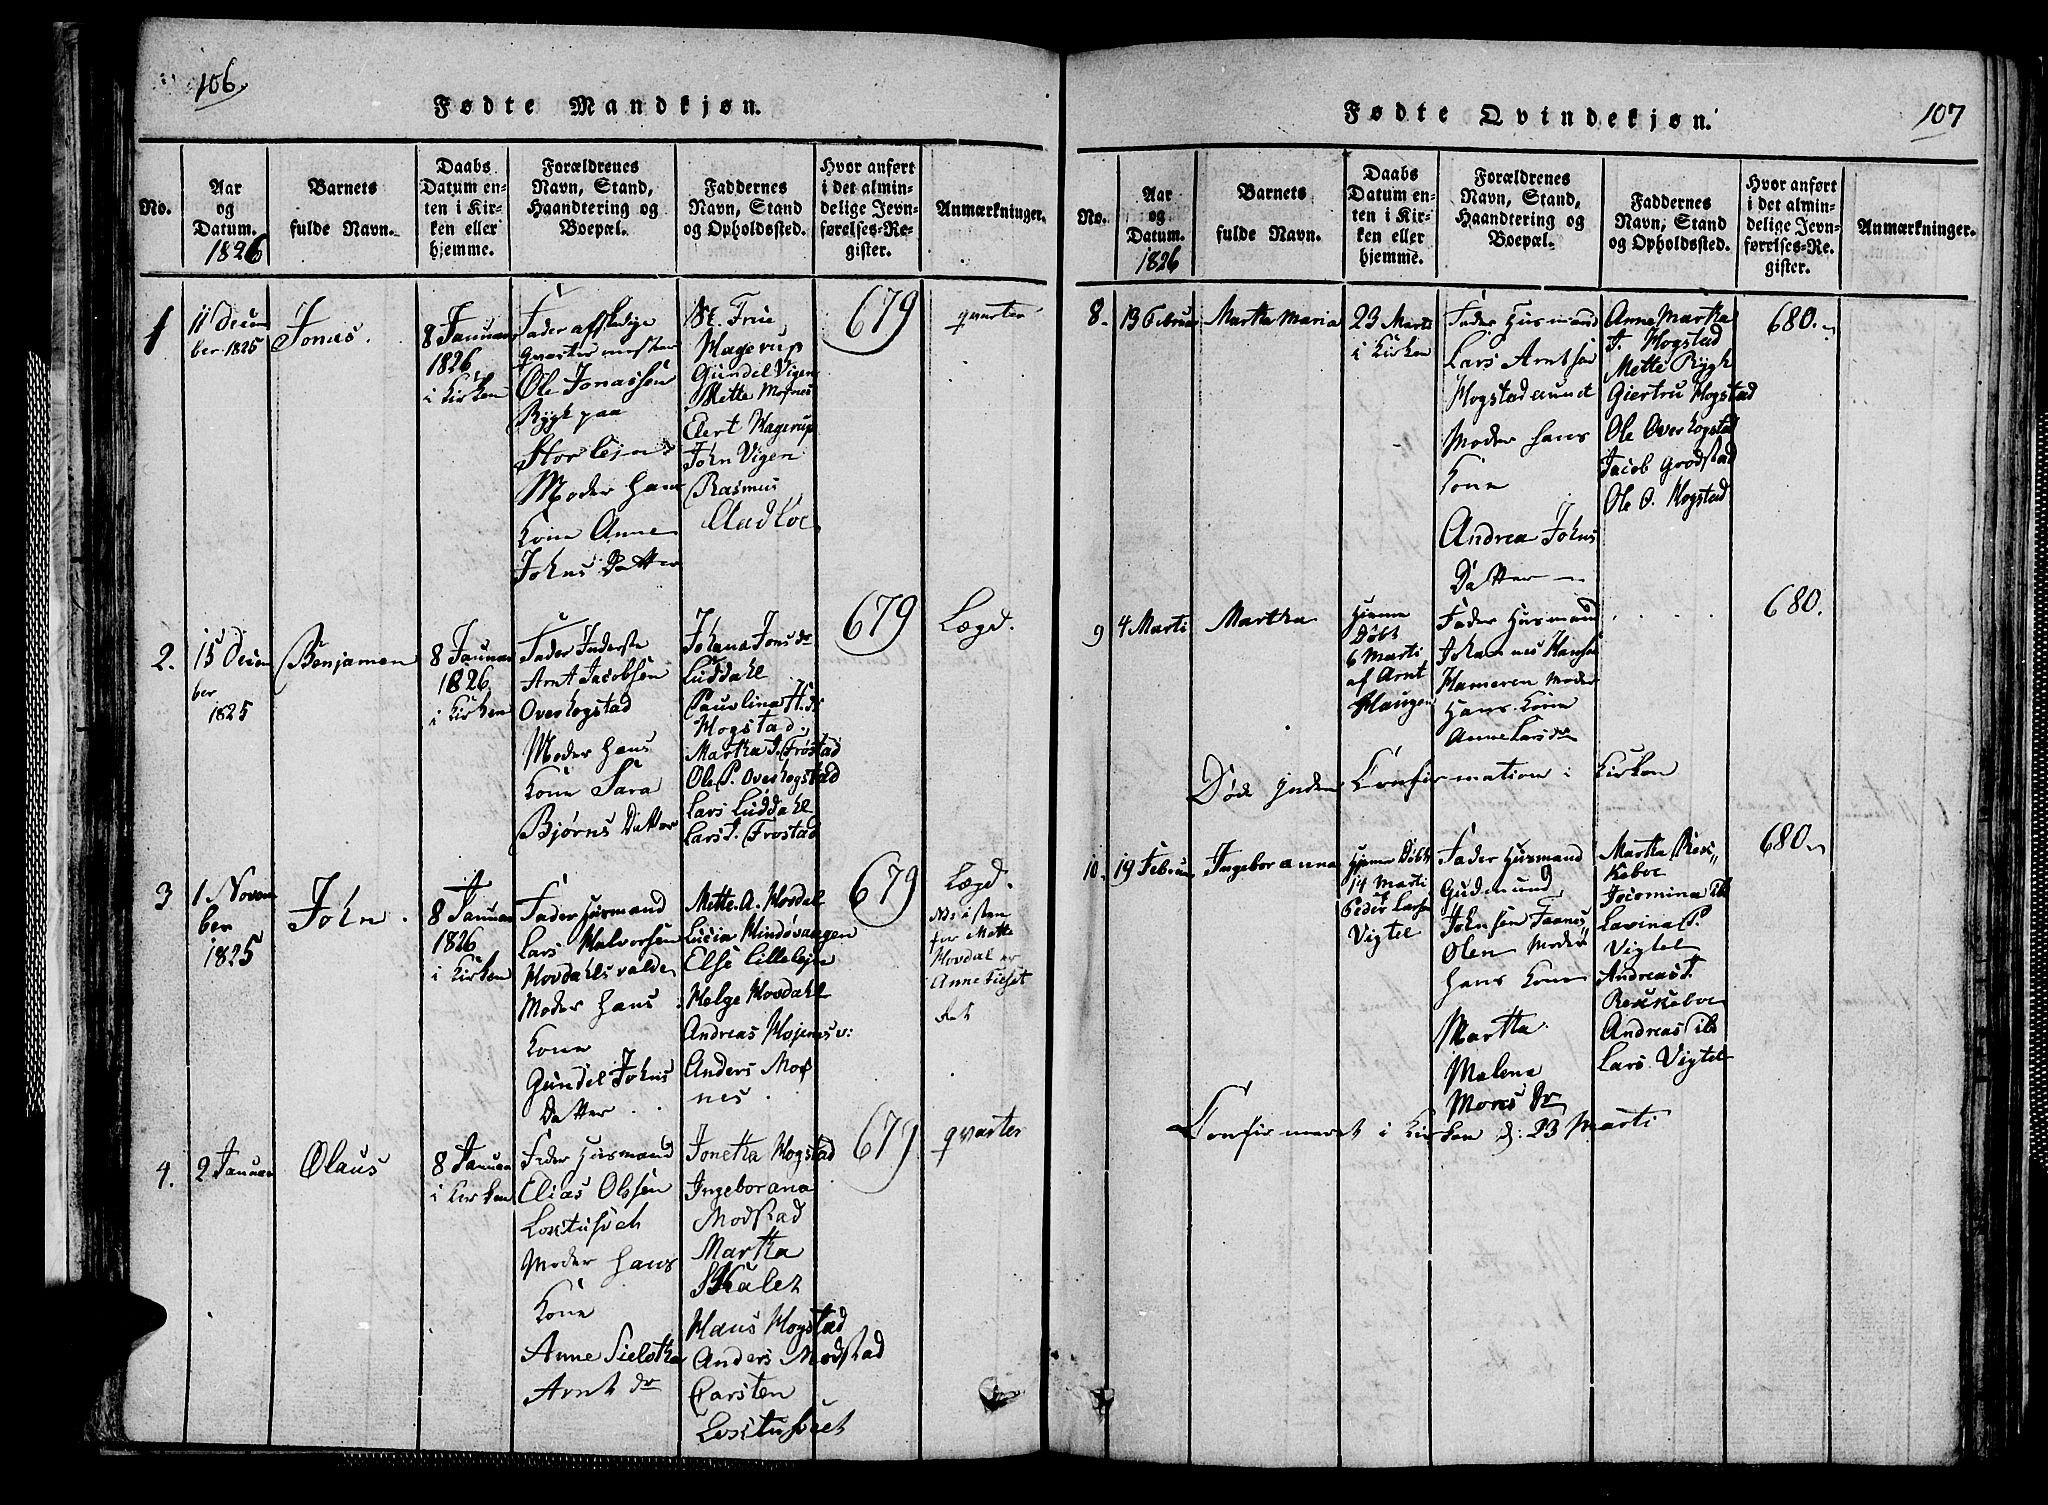 106.
Fødte Mandkjøn.
No.
Aar
og
Datum.
1826
Barnets
fulde Navn.
Daabs
Datum en-
ten i Kir-
ken eller
hjemme.
Forældrenes
Navn, Stand,
Haandtering og
Boepæl.
Faddernes
Navn, Stand
og Opholdssted.
Hvor anført
i det almin-
delige Jevn-
førelses-Re-
gister.
Anmærkninger.
1
11 Decem
ber 1825
Jonas.
8 Januar
1826
i Kirken
Fader afskedige
Ole Jonassen
Rygh paa
Storlejn
Moder hans
Kone Anne
Johns Datter
Frue
Hagerup
Gundel Vigen
Mette Mosnes
Elert Hagerup
John Vigen
Rasmus
679
qvarter
2.
15 Decem
ber
1825
Benjamen
8 Januar
1826
i Kirken
Fader Inderste
Arnt Jacobsen
Overhogstad
Moder hans
Kone Sara
Bjørns Datter
Johana Jons dr
Lüddahl
Paulina H. dr
Hogstad.
Martha J. Frøstad
Ole P. Overhogstad
Lars Lüddahl
Lars J. Frostad
679
Lægd.
3
1 Novem
ber
1825
John.
8 Januar
1826
i Kirken
Fader Husmand
Lars Halvorsen
Hovdahlsvalde
Moder hans
Kone
Gundel Johns
Datter
Mette A. Hovdal
Lucia Hindøvaagen
Else Lillelejn
Helge Hovdahl
Andreas Hojemsv:
Anders Mos
nes
679
Lægd.
for Mette
Hovdal er
Anne
4.
2 Januar
Olaus
8 Januar
i Kirken
Fader Husmand
Elias Olssen
Moder hans
Kone
Arnt dr
Jonetha Hogstad
Ingeborana
Modstad
Martha
Hans Hogstad
Anders Modstad
Carsten
679
qvarter
107
Fødte Qvindekjøn.
No.
Aar
og
Datum.
1826
Barnets
fulde Navn.
Daabs
Datum en-
ten i Kir-
ken eller
hjemme.
Forældrenes
Navn, Stand,
Haandtering og
Boepæl.
Faddernes
Navn, Stand
og Opholdssted.
Hvor anført
i det almin-
delige Jevn-
førelses-Re-
gister.
Anmærkninger.
8.
13 Februar
Martha Maria
23 Marti
i Kirken
Fader Husmand
Lars Arntsen
Hogstadaunet
Moder hans
Kone
Andrea Johns
Datter
Anne Martha
J. Hogstad
Mette Rygh
Giertru Hogstad
Ole Overhogstad
Jacob Grodstad
Ole O. Hogstad
680.
9
4 Marti
Martha
Hjeme
Døbt
6 Marti
af Arnt
Haugen
Fader Husmand
Johannes Hansen
Hameren Moder
Hans Kone
Anne Lars dr
680.
Døde inden Confirmation i Kirken
10.
19 Februar
Ingeboranna
Hjeme Døbt
14 Marti
Peder Larsen
Vigtel
Fader Husmand
Gudmund
Johnsen Faanes
Olen Moder
Hans Kone
Martha
Malena
Mons Dr
Martha Res
keboe
Jocomina ib
Lavina P.
Vigtel
Andreas J.
Reskeboe
Andreas ib
Lars Vigtel
680
Confirmeret i Kirken d: 23 Marti